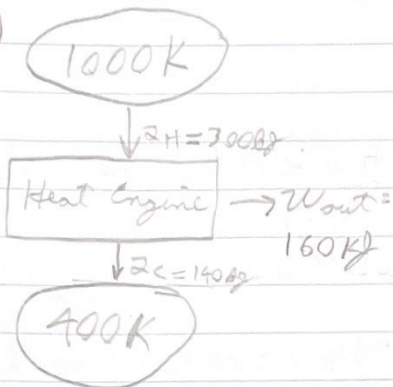 1000K
2H = 300kJ
Heat Engine → Wout =
160 KJ
2c = 140kJ
400K